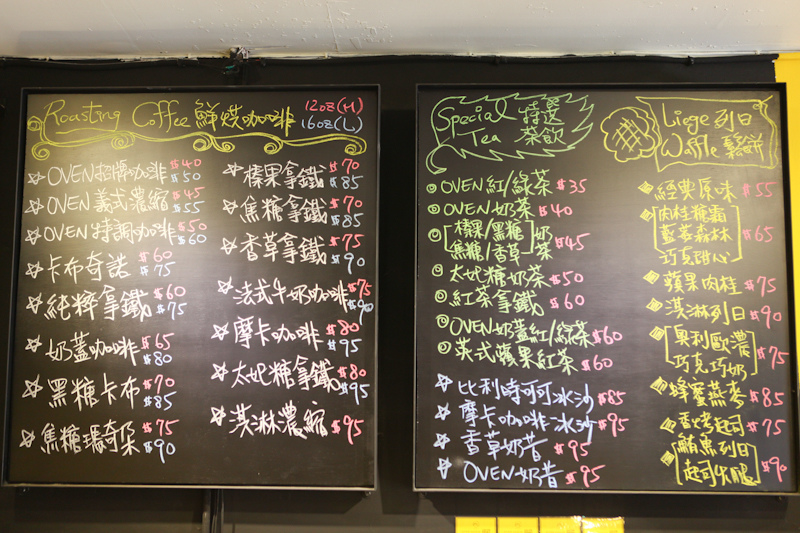 Roasting Coffee 鮮焙咖啡 12oz(M)
16oz(L)
OVEN招牌咖啡 $40
$50
OVEN義式濃縮 $45
$55
OVEN特調咖啡 $50
$60
卡布奇諾 $60
$75
純粹拿鐵 $60
$75
奶蓋咖啡 $65
$80
黑糖卡布 $70
$85
焦糖瑪奇朵 $75
$90
榛果拿鐵 $70
$85
焦糖拿鐵 $70
$85
香草拿鐵 $75
$90
法式牛奶咖啡 $75
$90
摩卡咖啡 $80
$95
太妃糖拿鐵 $80
$95
淇淋濃縮 $95
Special 特選
Tea 茶飲
OVEN紅/綠茶 $35
OVEN奶茶 $40
[榛果/黑糖]奶 $45
焦糖/香草 茶
太妃糖奶茶 $50
紅茶拿鐵 $60
OVEN奶蓋紅/綠茶 $60
英式蘋果紅茶 $60
比利時可可冰沙 $85
摩卡咖啡冰沙 $95
香草奶昔 $95
OVEN奶昔 $95
Liege 列日
Waffle 鬆餅
經典原味 $55
肉桂糖霜
藍莓森林 $65
巧克甜心
蘋果肉桂 $75
淇淋列日 $90
奧利歐濃
巧克巧奶 $75
蜂蜜燕麥 $85
香烤起司 $75
鮪魚列日
起司火腿 $90